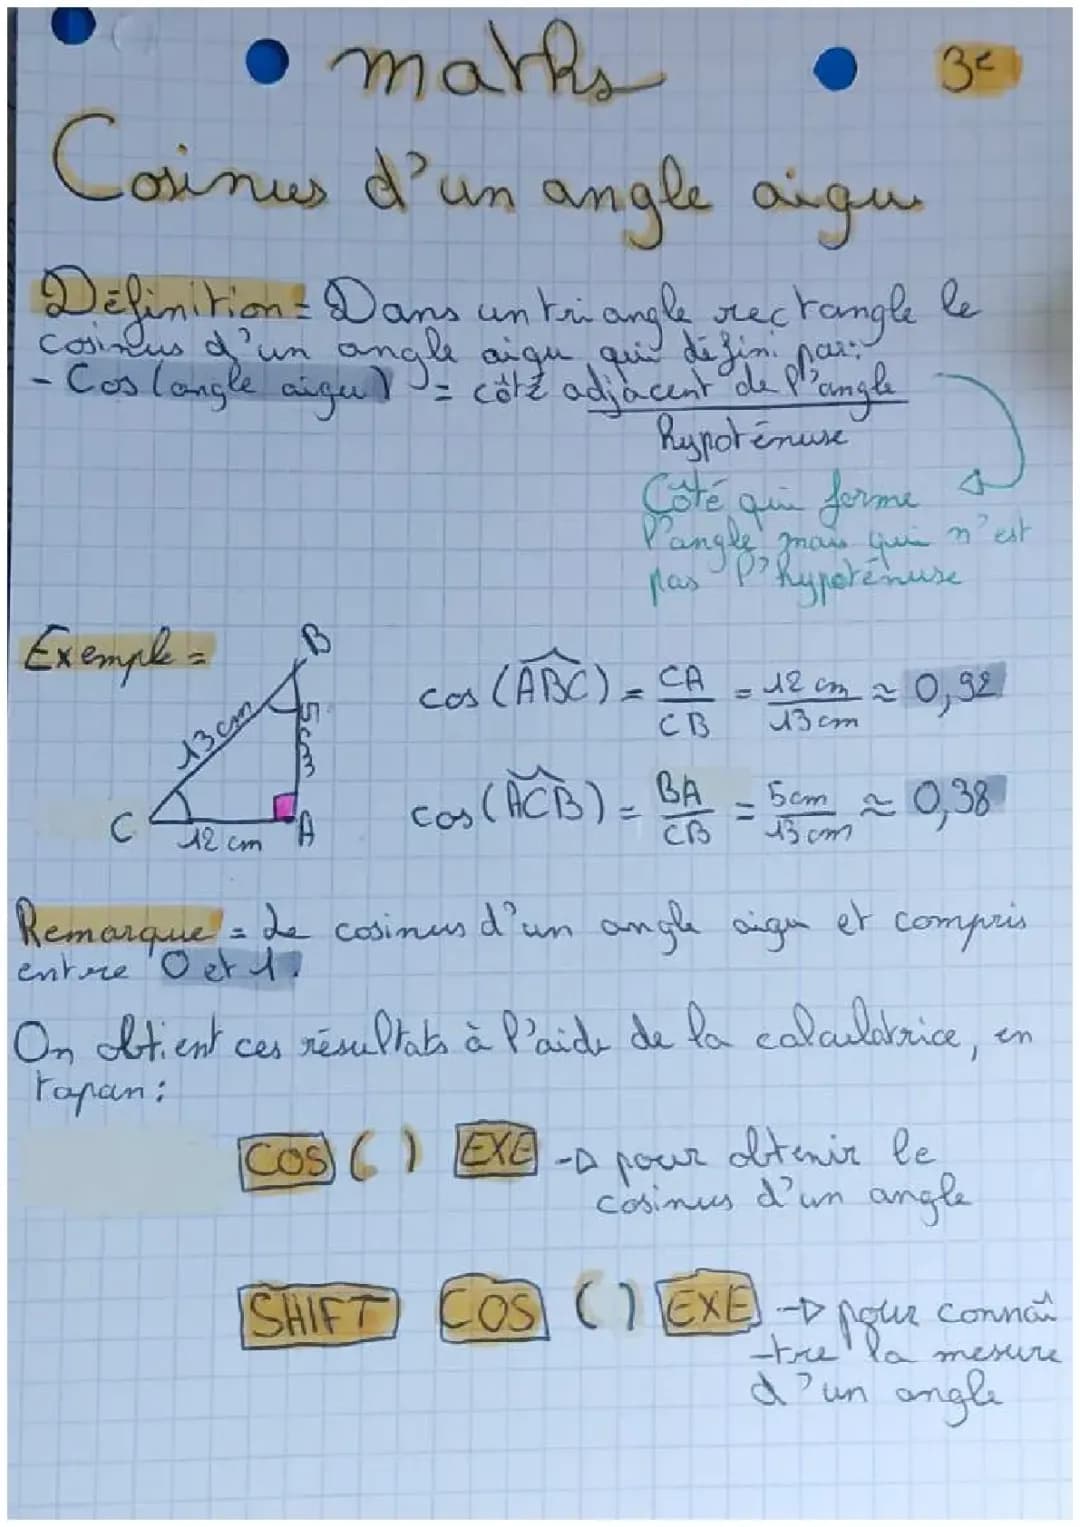 maths
3e
Cosinus d'un angle aigu
Définition = Dans un triangle rectangle le
cosinus d'un angle aigu qui défini par:
- Cos (angle aigu) = côté adjacent de l'angle
hypoténuse
Côté qui forme
l'angle mais qui n'est
pas l'hypoténuse
Exemple =
B
13 cm
5 cm
C
12 cm
A
cos (ABC) = CA/CB = 12 cm/13 cm ≈ 0,92
cos (ACB) = BA/CB = 5 cm/13 cm ≈ 0,38
Remarque = Le cosinus d'un angle aigu et compris
entre 0 et 1.
On obtient ces résultats à l'aide de la calculatrice, en
tapan :
COS ( ) EXE -> pour obtenir le
cosinus d'un angle
SHIFT COS ( ) EXE -> pour connaî
-tre la mesure
d'un angle